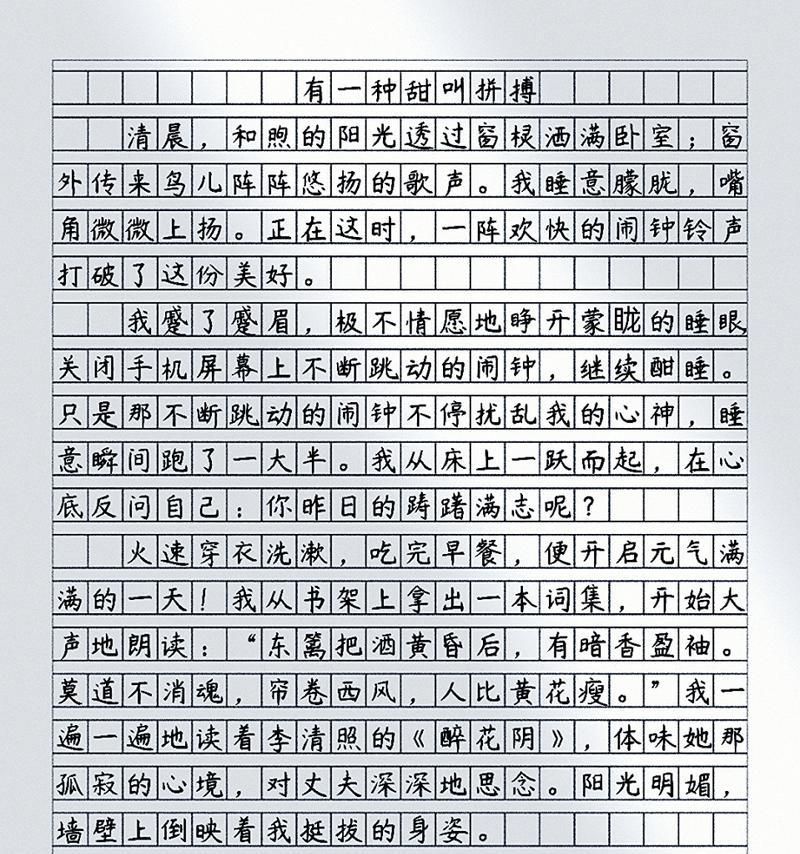 有一种甜叫拼搏
清晨，和煦的阳光透过窗棂洒满卧室；窗
外传来鸟儿阵阵悠扬的歌声。我睡意朦胧，嘴
角微微上扬。正在这时，一阵欢快的闹钟铃声
打破了这份美好。
我蹙了蹙眉，极不情愿地睁开蒙眬的睡眼，
关闭手机屏幕上不断跳动的闹钟，继续酣睡。
只是那不断跳动的闹钟不停扰乱我的心神，睡
意瞬间跑了一大半。我从床上一跃而起，在心
底反问自己：你昨日的踌躇满志呢？
火速穿衣洗漱，吃完早餐，便开启元气满
满的一天！我从书架上拿出一本词集，开始大
声地朗读：“东篱把酒黄昏后，有暗香盈袖。
莫道不消魂，帘卷西风，人比黄花瘦。”我一
遍一遍地读着李清照的《醉花阴》，体味她那
孤寂的心境，对丈夫深深地思念。阳光明媚，
墙壁上倒映着我挺拔的身姿。